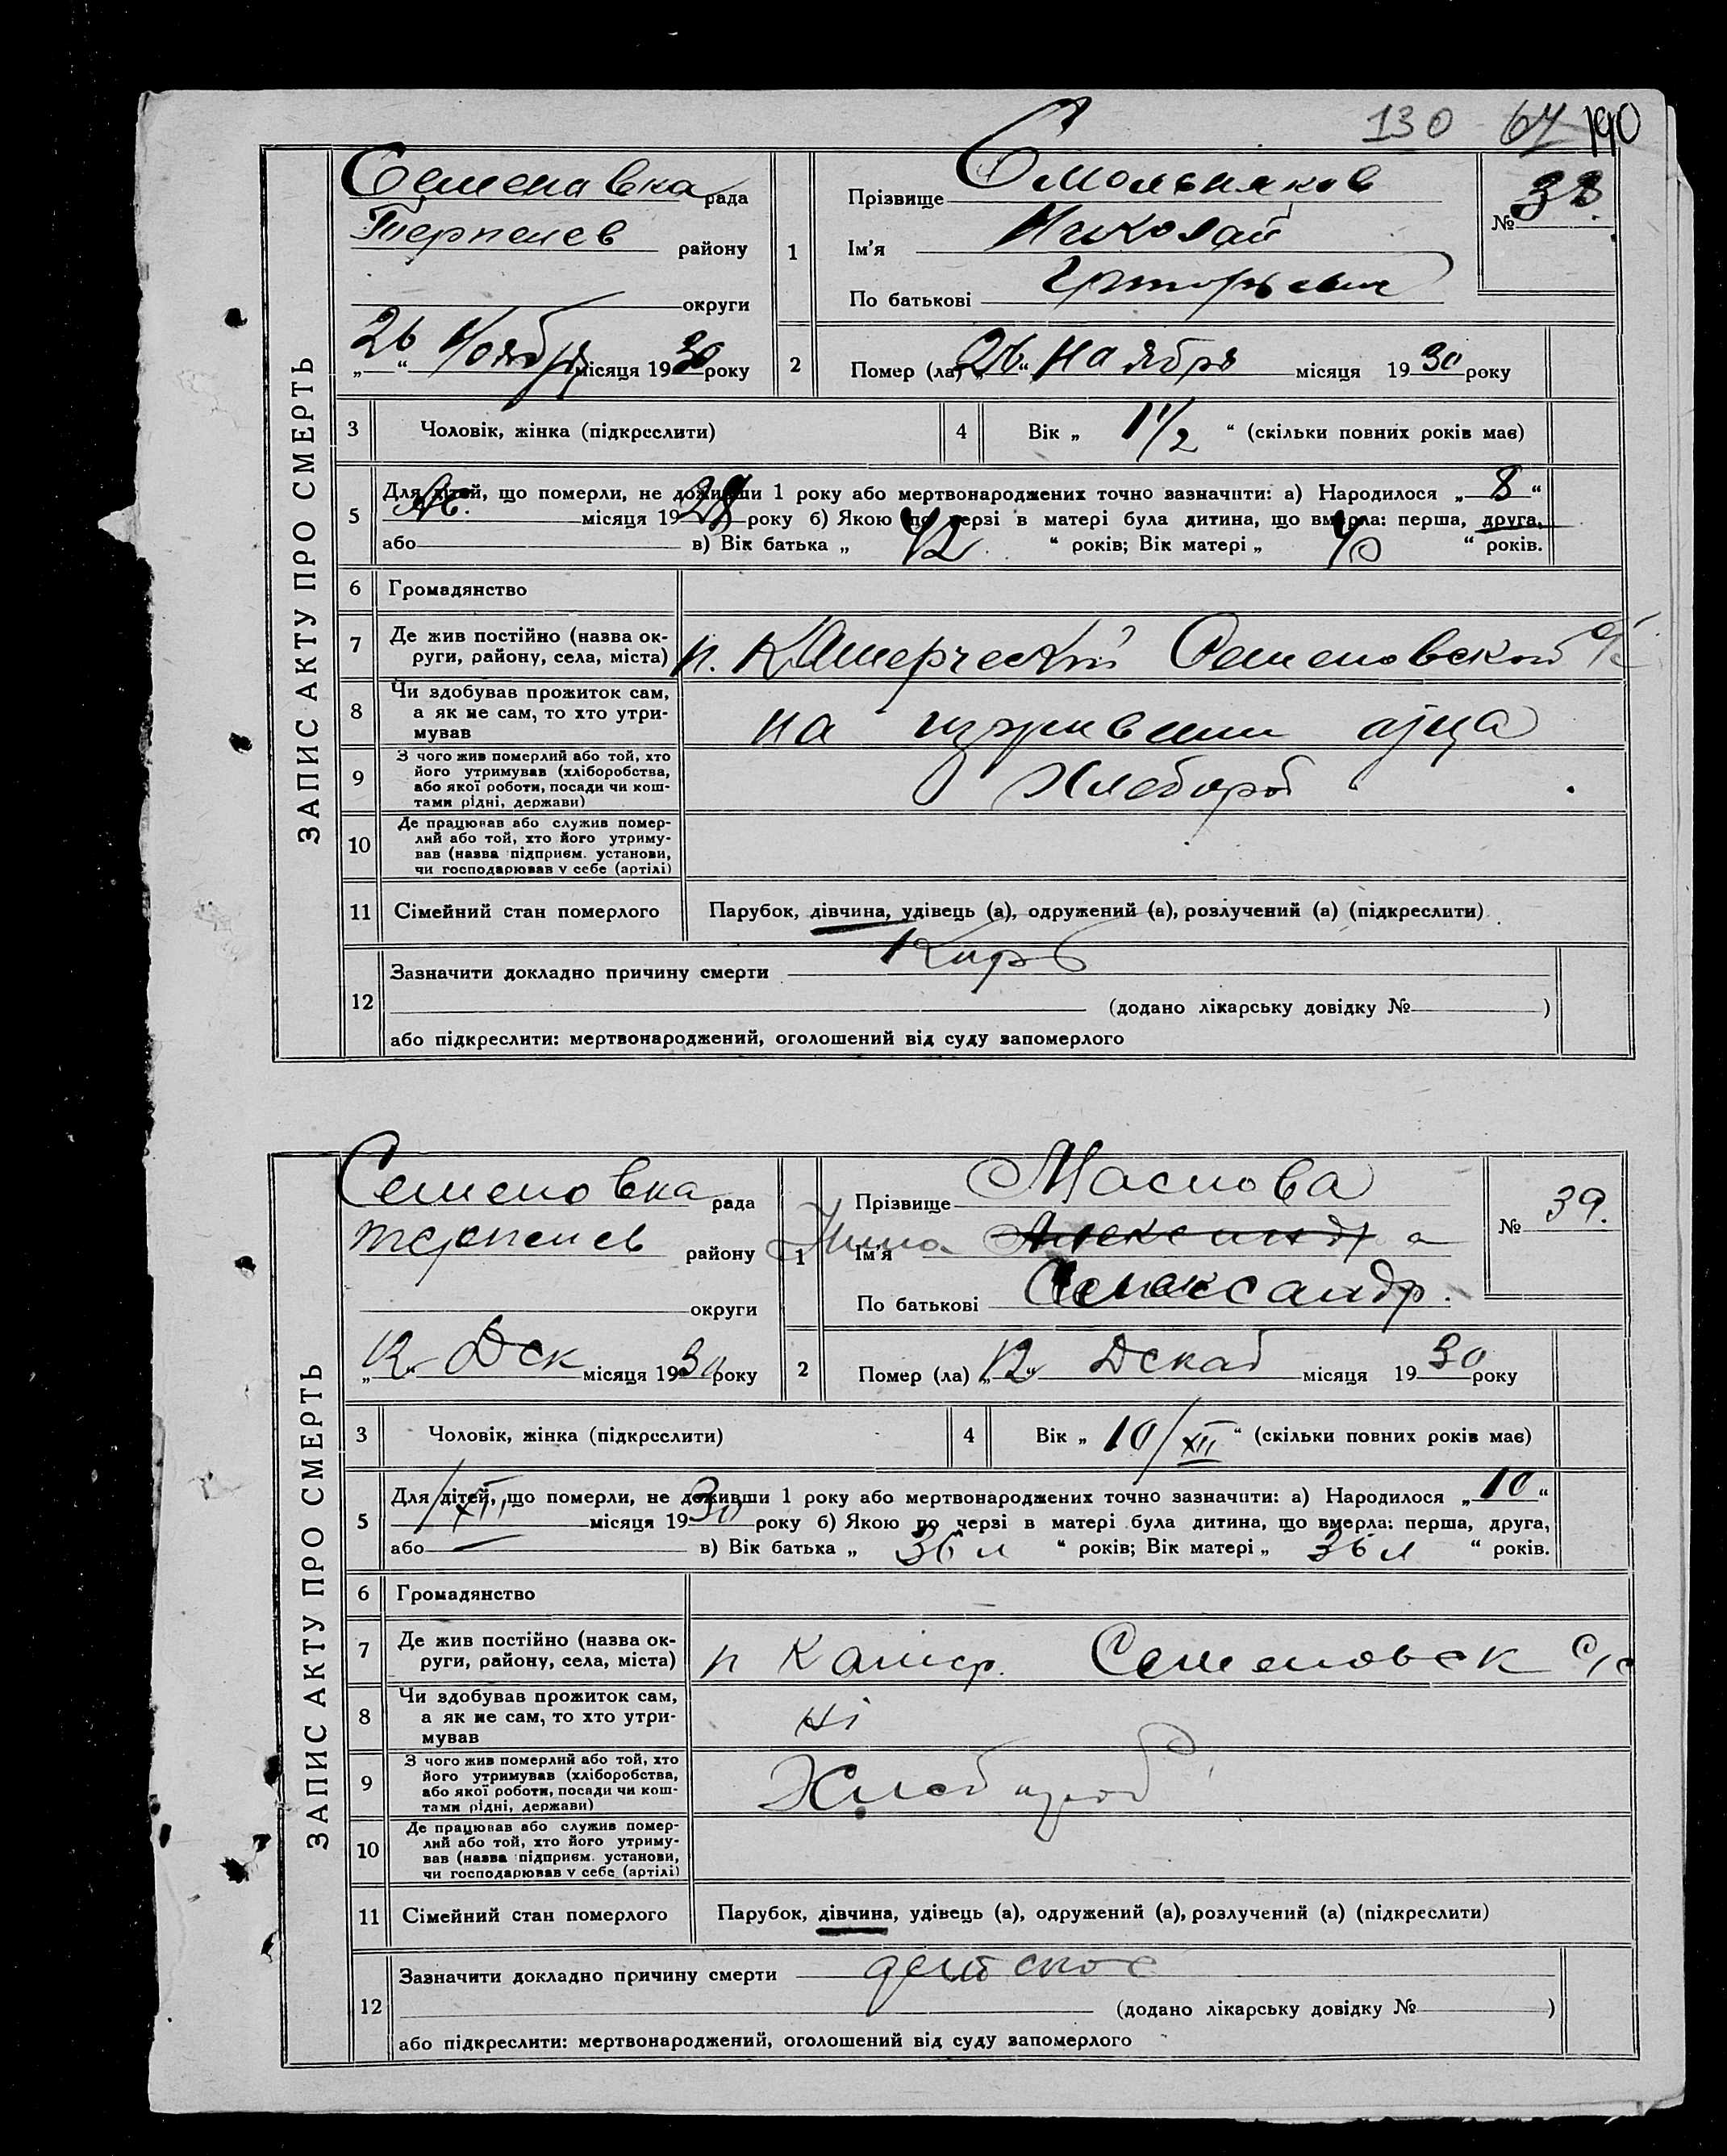 130 64 190
ЗАПИС АКТУ ПРО СМЕРТЬ
Семеновка рада
Терпенев району
округи
„26“ Ноября місяця 1930 року
1
Прізвище Смольняков
Ім'я Николай
По батькові Григорьевич
№ 38.
2 Помер (ла) „26“ Ноября місяця 1930 року
3 Чоловік, жінка (підкреслити)
4 Вік „ 1 1/2 “ (скільки повних років має)
5 Для дітей, що померли, не доживши 1 року або мертвонароджених точно зазначити: а) Народилося „8“
місяця 19 року б) Якою по черзі в матері була дитина, що вмерла: перша, друга,
або в) Вік батька „ 42 “ років; Вік матері „ 40 “ років.
6 Громадянство
7 Де жив постійно (назва округи, району, села, міста) п. Семеновской с/с
8 Чи здобував прожиток сам, а як не сам, то хто утримував на отца
9 З чого жив померлий або той, хто його утримував (хліборобства, або якої роботи, посади чи коштами рідні, держави) Хлебороб
10 Де працював або служив померлий або той, хто його утримував (назва підприєм. установи, чи господарював у себе (артілі)
11 Сімейний стан померлого Парубок, дівчина, удівець (а), одружений (а), розлучений (а) (підкреслити)
12 Зазначити докладно причину смерти Корь
(додано лікарську довідку № )
або підкреслити: мертвонароджений, оголошений від суду запомерлого
ЗАПИС АКТУ ПРО СМЕРТЬ
Семеновка рада
Терпенев району
округи
„12“ Дек місяця 1930 року
1
Прізвище Маслова
Ім'я Нина Александра
По батькові Александр.
№ 39.
2 Помер (ла) „12“ Декаб місяця 1930 року
3 Чоловік, жінка (підкреслити)
4 Вік „ 10/XII “ (скільки повних років має)
5 Для дітей, що померли, не доживши 1 року або мертвонароджених точно зазначити: а) Народилося „10“
/XII місяця 1930 року б) Якою по черзі в матері була дитина, що вмерла: перша, друга,
або — в) Вік батька „ 36 л “ років; Вік матері „ 36 л “ років.
6 Громадянство
7 Де жив постійно (назва округи, району, села, міста) п Камер. Семеновск с/с
8 Чи здобував прожиток сам, а як не сам, то хто утримував Ні
9 З чого жив померлий або той, хто його утримував (хліборобства, або якої роботи, посади чи коштами рідні, держави) Хлебороб
10 Де працював або служив померлий або той, хто його утримував (назва підприєм. установи, чи господарював у себе (артілі)
11 Сімейний стан померлого Парубок, дівчина, удівець (а), одружений (а), розлучений (а) (підкреслити)
12 Зазначити докладно причину смерти детское
(додано лікарську довідку № )
або підкреслити: мертвонароджений, оголошений від суду запомерлого